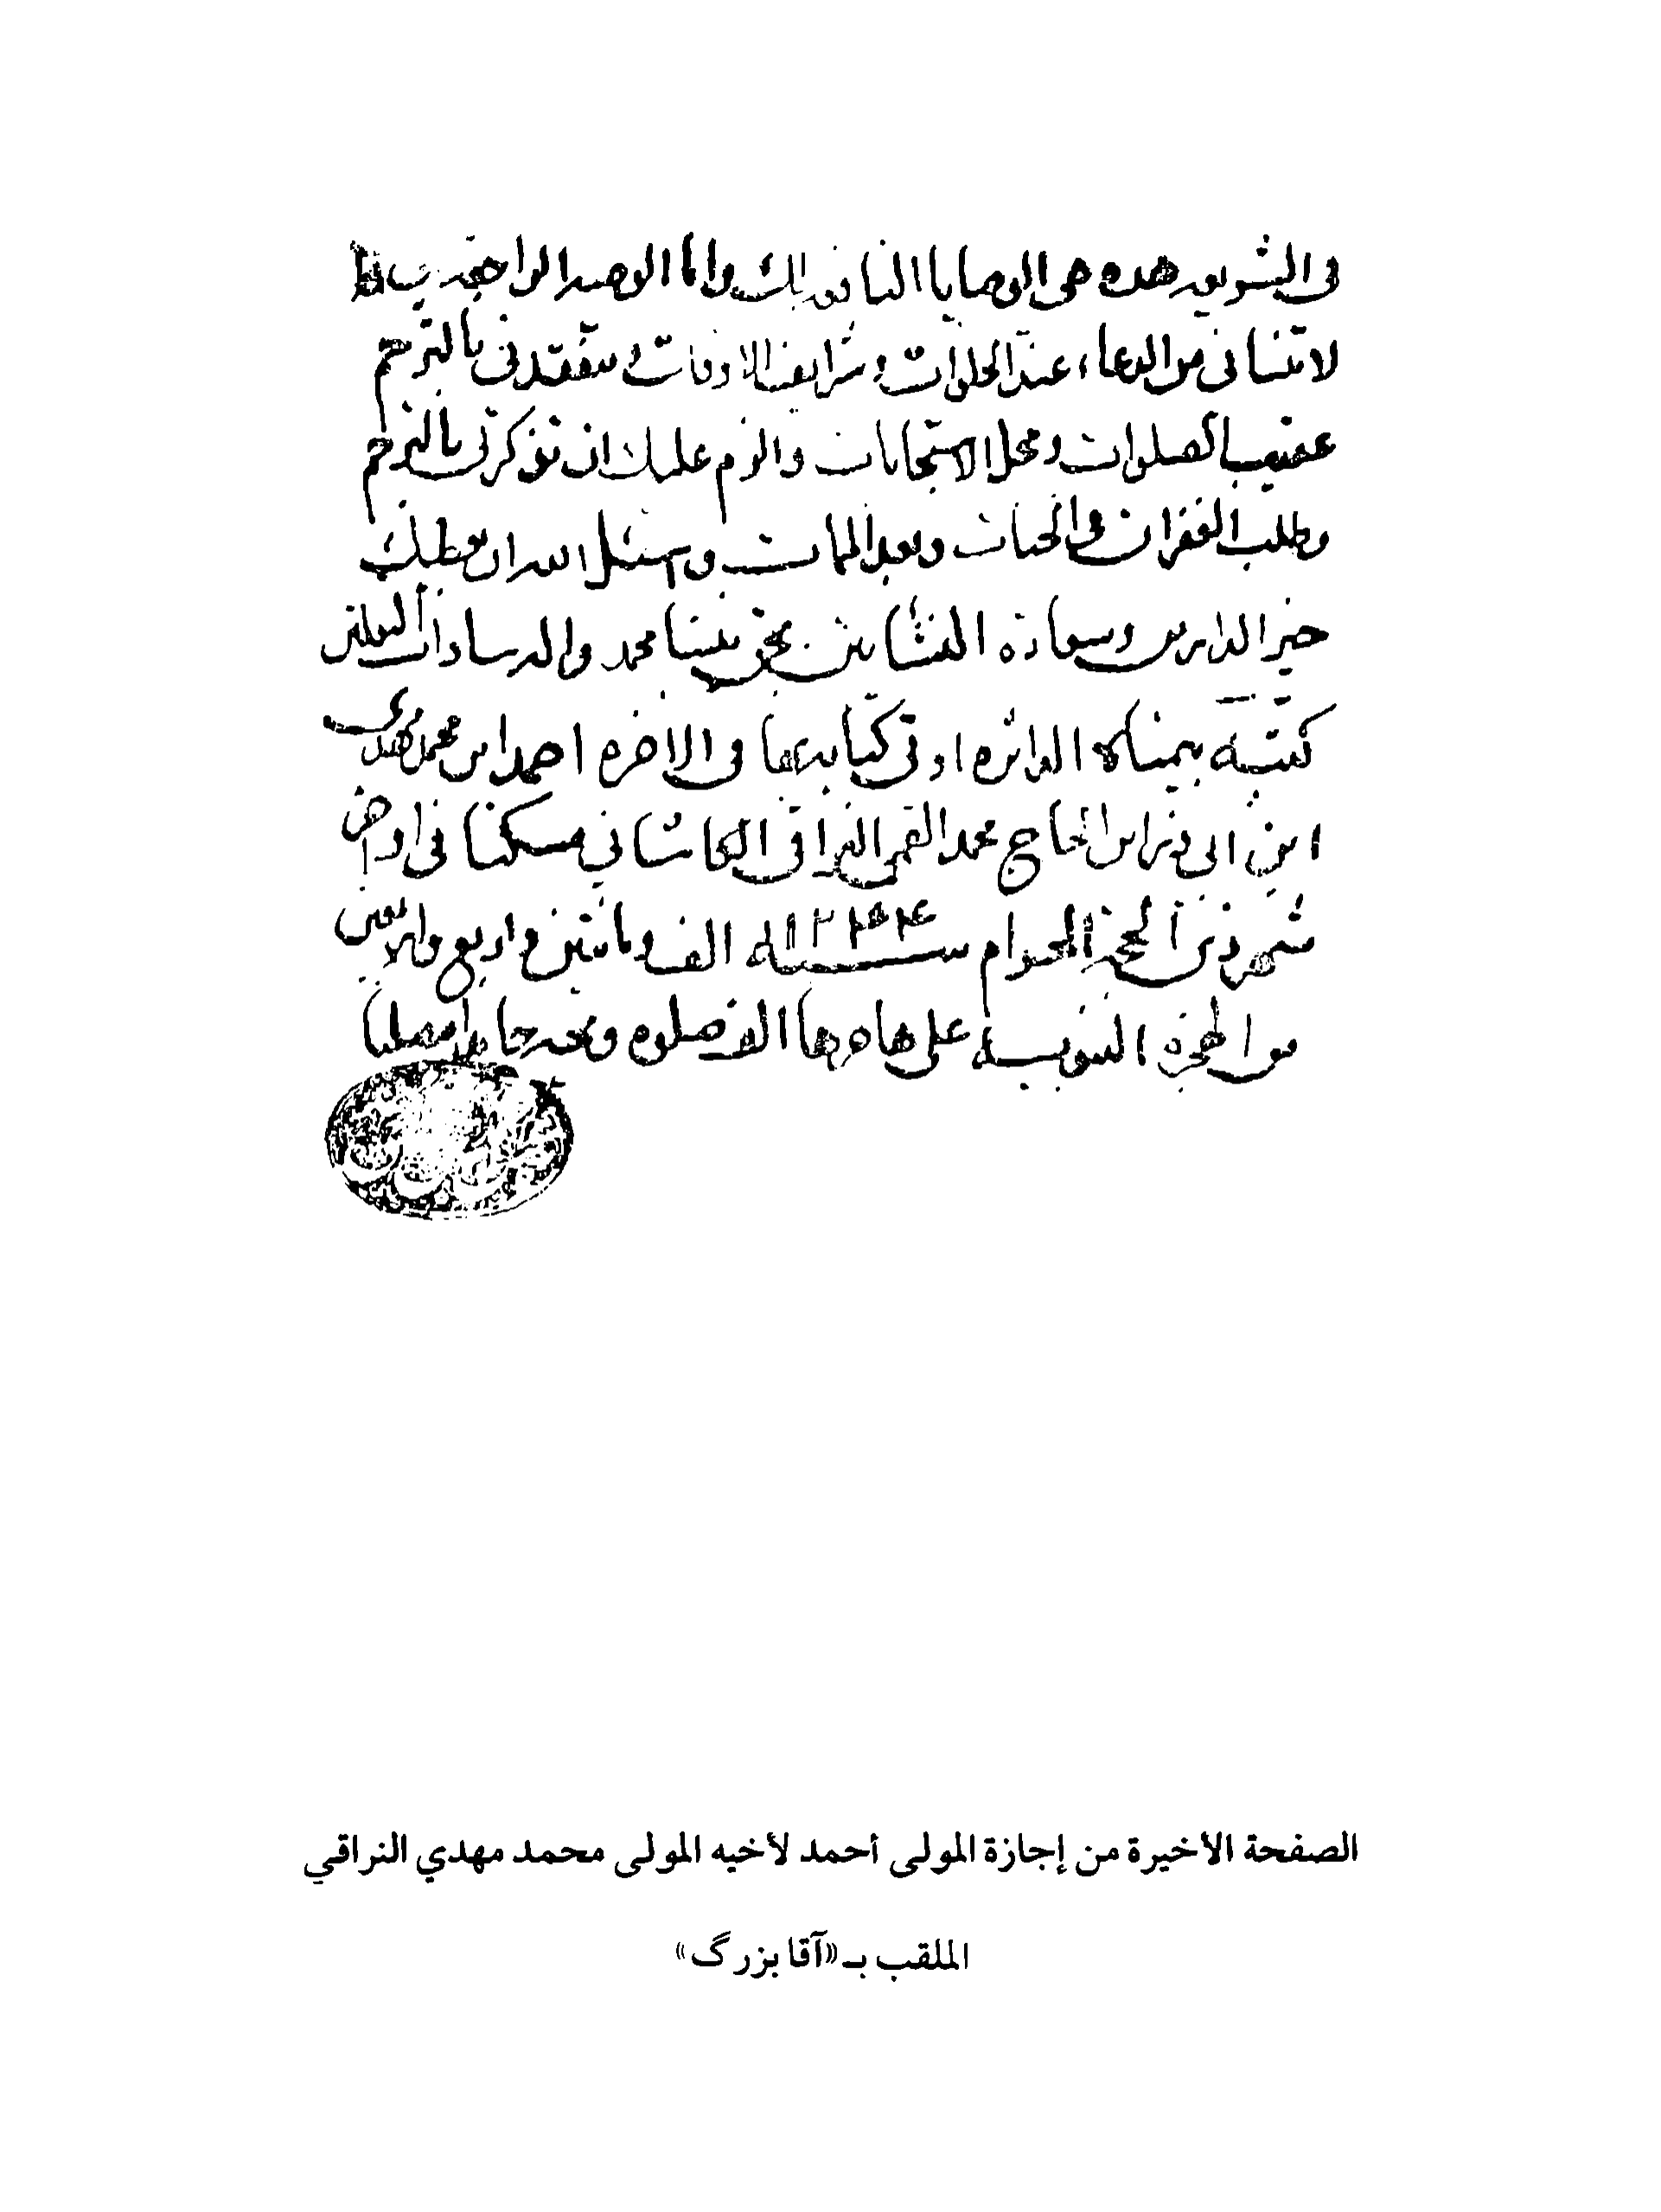 في الشريعه هذه هي الوصايا النافعه لك واما الوصيه الواجبه
لا تنساني من الدعاء عند الخلوات وشرايف الاوقات وتتفقدني بالترحم
عقيب الصلوات ومحل الاستجابات والزم عليك ان تذكرني بالترحم
وطلب الغفران في الحيات وبعد الممات واسئل الله ان يعطيك
خير الدارين وسعادة النشاتين بحق نبينا محمد واله سادات الثقلين
كتبه بيمناه الداثره اوتي كتابه بها في الاخره احمد ابن محمد مهدي
ابن ابي ذر ابن الحاج محمد القمي النراقي الكاشاني مسكنا في اواخر
شهر ذي الحجة الحرام سنه ۱۲۴۴ الف ومائتين واربع واربعين
من الهجرة النبوية على هاجرها الف صلوه وتحيه حامدا مصليا
الصفحة الأخيرة من إجازة المولى أحمد لأخيه المولى محمد مهدي النراقي
الملقب بـ «آقا بزرگ»